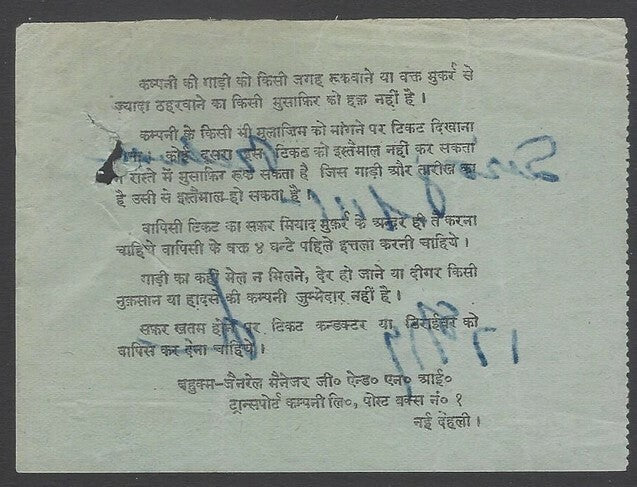 कम्पनी की गाड़ी को किसी जगह रूकवाने या वक्त मुकर्र से
ज्यादा ठहरवाने का किसी मुसाफ़िर को हक़ नहीं है ।
कम्पनी के किसी भी मुलाज़िम को मांगने पर टिकट दिखाना
कोई दूसरा टिकट को इस्तैमाल नहीं कर सकता
रास्ते में मुसाफ़िर सकता है जिस गाड़ी और तारीख का
है उसी से इस्तैमाल हो सकता है ।
वापिसी टिकट का सफ़र मियाद मुक़र्र के अन्दर ही तै करना
चाहिये वापिसी के वक्त ४ घन्टे पहिले इत्तला करनी चाहिये ।
गाड़ी का कहीं मेल न मिलने, देर हो जाने या दीगर किसी
नुक़सान या हादसे की कम्पनी जुम्मेदार नहीं है ।
सफ़र ख़तम होने पर टिकट कन्डक्टर या डिराईवर को
वापिस कर देना चाहिये ।
बहुक्म-जैनरेल मैनेजर जी० ऐन्ड० एन० आई०
ट्रान्सपोर्ट कम्पनी लि०, पोस्ट बक्स नं० १
नई देहली ।